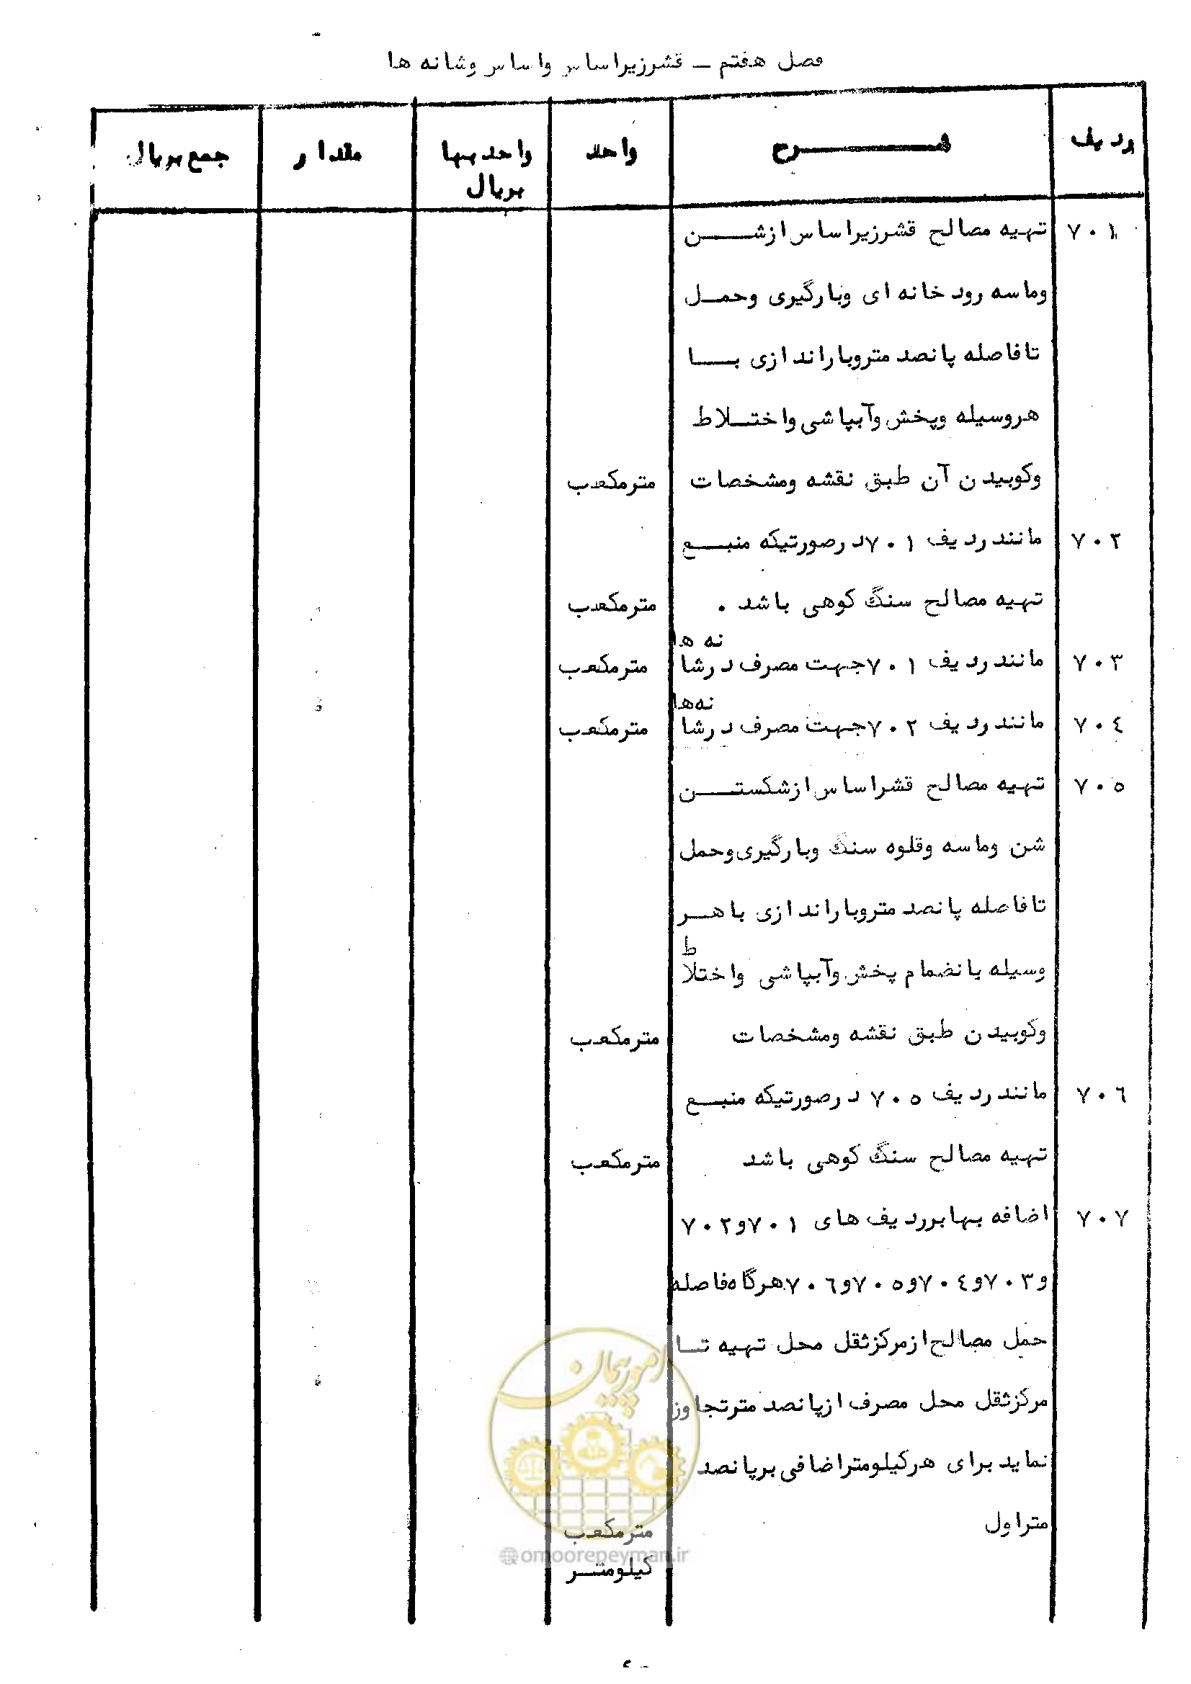 فصل هفتم ــ قشرزیراساس واساس وشانه ها
ردیف شـــــرح واحد واحدبها بریال مقدار جمع بریال
۷۰۱ تهیه مصالح قشرزیراساس ازشــــن
وماسه رودخانه ای وبارگیری وحمــل
تافاصله پانصد متروباراندازی بـــا
هروسیله وپخش وآبپاشی واختــلاط
وکوبیدن آن طبق نقشه ومشخصات مترمکعب
۷۰۲ مانند ردیف ۷۰۱ درصورتیکه منبــع
تهیه مصالح سنگ کوهی باشد . مترمکعب
۷۰۳ مانند ردیف ۷۰۱ جهت مصرف درشانه ها مترمکعب
۷۰٤ مانند ردیف ۷۰۲ جهت مصرف درشانه ها مترمکعب
۷۰۵ تهیه مصالح قشراساس ازشکستــــن
شن وماسه وقلوه سنگ وبارگیری وحمل
تافاصله پانصد متروباراندازی باهــر
وسیله بانضمام پخش وآبپاشی واختلاط
وکوبیدن طبق نقشه ومشخصات مترمکعب
۷۰٦ مانند ردیف ۷۰۵ درصورتیکه منبــع
تهیه مصالح سنگ کوهی باشد مترمکعب
۷۰۷ اضافه بهابرردیف های ۷۰۱و۷۰۲
و۷۰۳و۷۰٤و۷۰۵و۷۰٦هرگاه فاصله
حمل مصالح ازمرکزثقل محل تهیه تــا
مرکزثقل محل مصرف ازپانصد مترتجاوز
نماید برای هرکیلومتراضافی برپانصد
متراول مترمکعب
کیلومتــر
امور پیمان
@omoorepeyman.ir